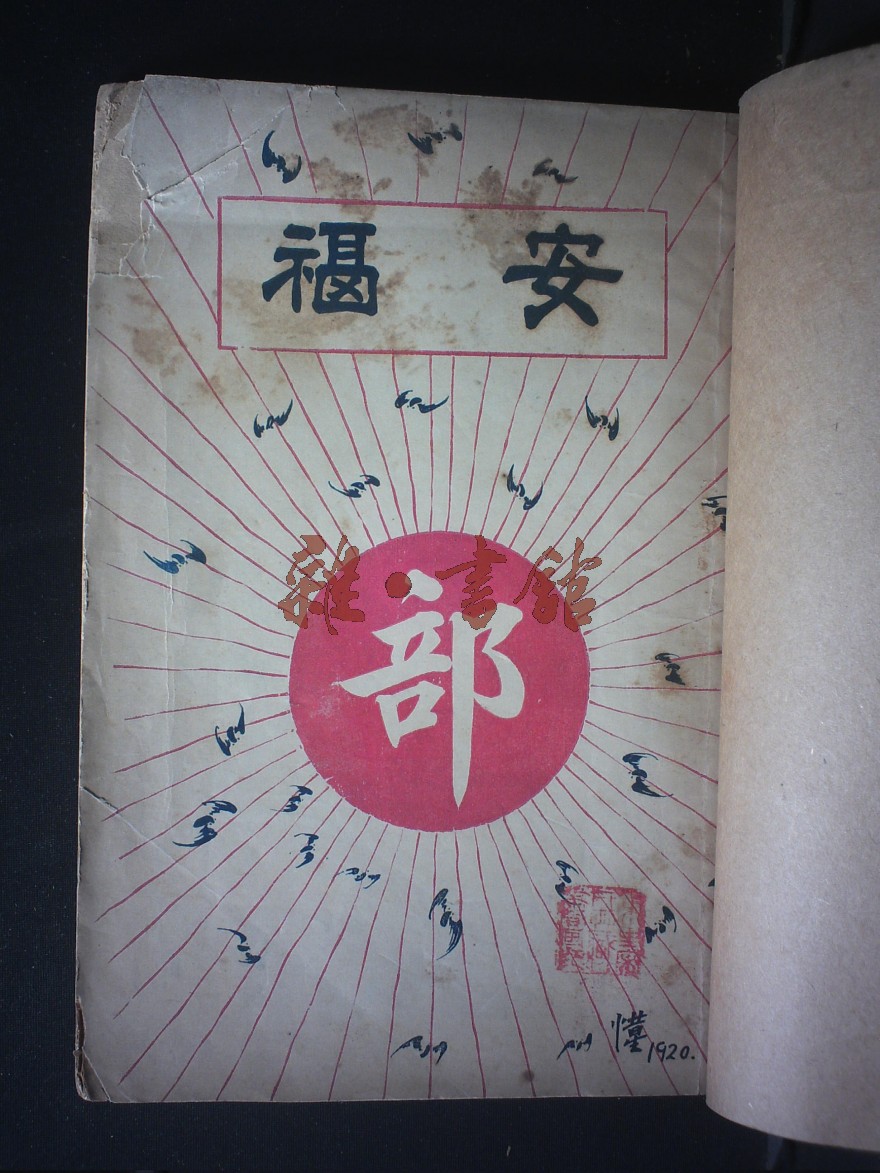 安福
雜·書館
部
1920.